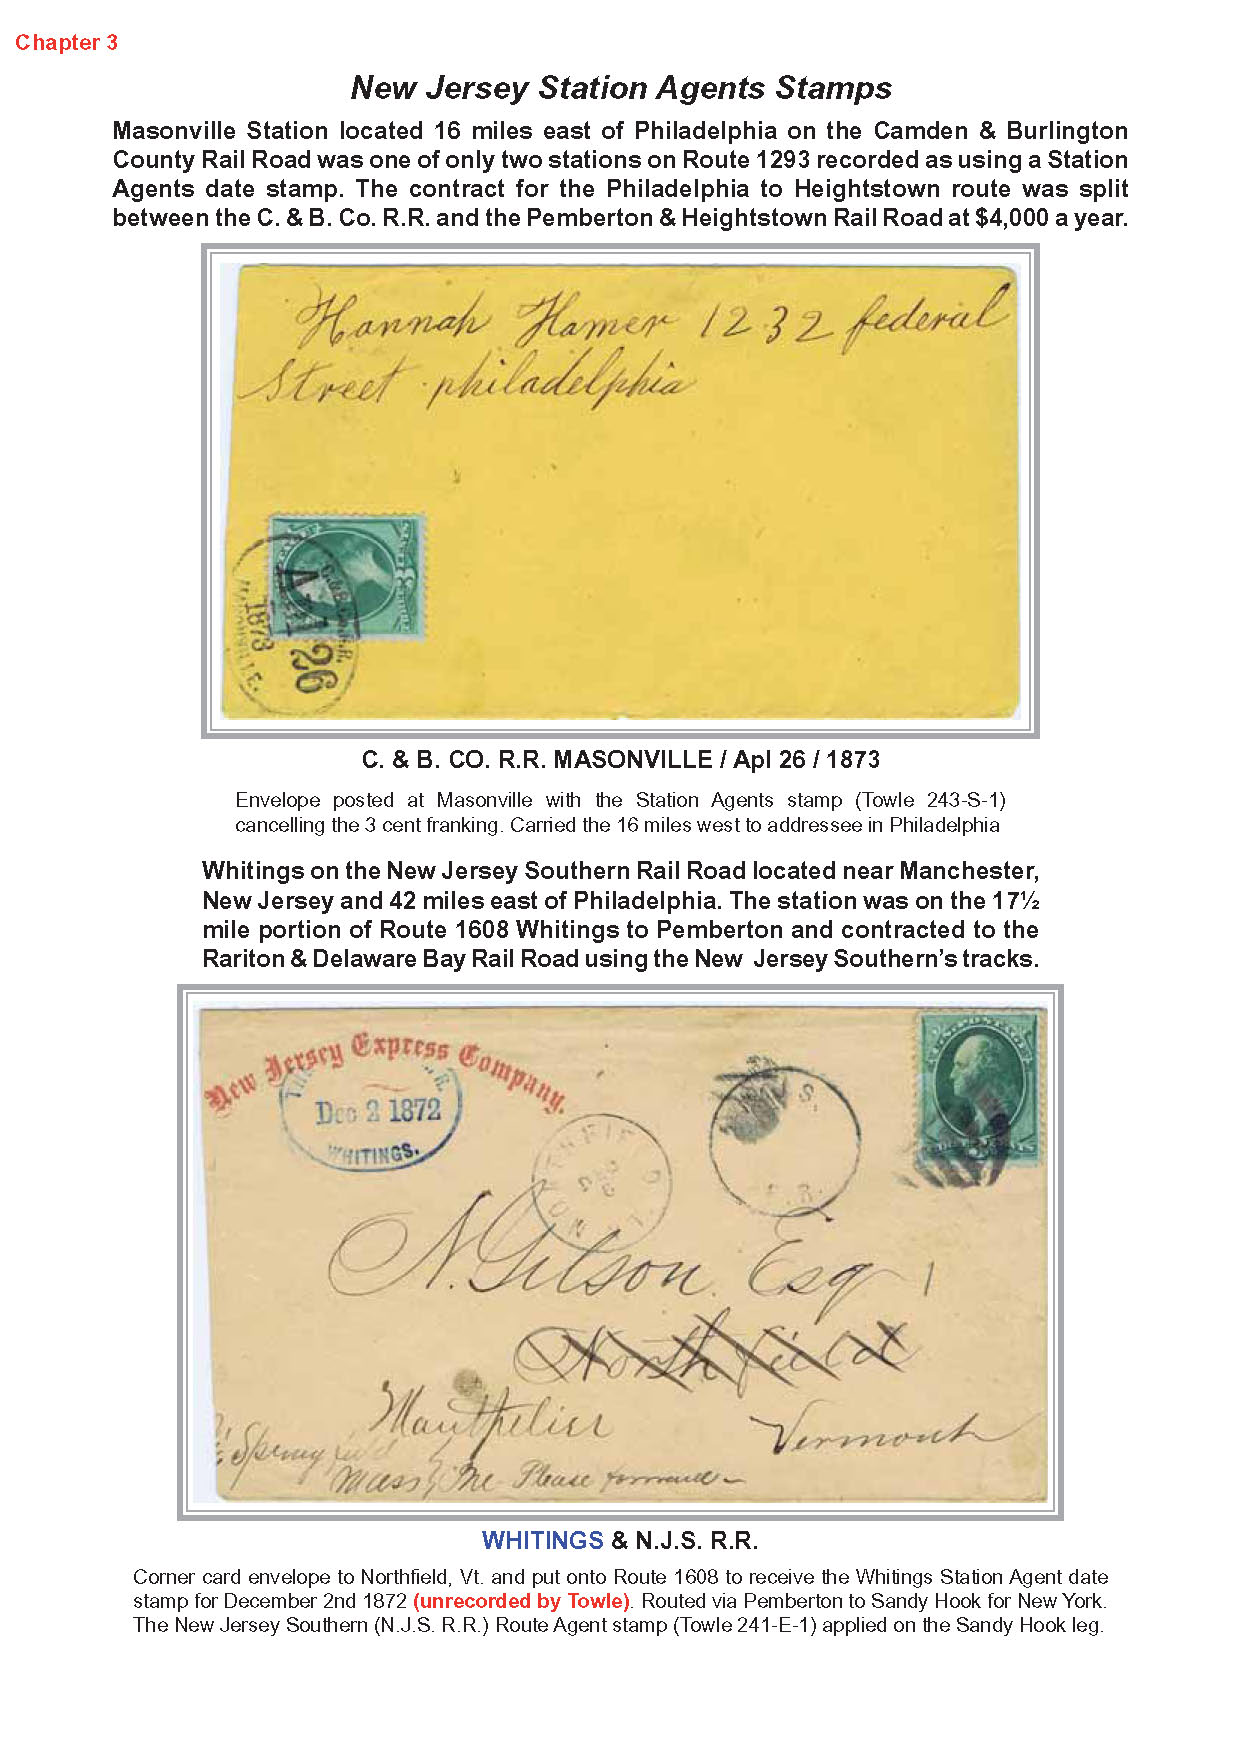 Chapter 3
New Jersey Station Agents Stamps
Masonville Station located 16 miles east of Philadelphia on the Camden & Burlington
County Rail Road was one of only two stations on Route 1293 recorded as using a Station
Agents date stamp. The contract for the Philadelphia to Heightstown route was split
between the C. & B. Co. R.R. and the Pemberton & Heightstown Rail Road at $4,000 a year.
Hannah Hamer 1232 federal
Street philadelphia
MASONVILLE.
1873
26
C. & B. CO. R.R. MASONVILLE / Apl 26 / 1873
Envelope posted at Masonville with the Station Agents stamp (Towle 243-S-1)
cancelling the 3 cent franking. Carried the 16 miles west to addressee in Philadelphia
Whitings on the New Jersey Southern Rail Road located near Manchester,
New Jersey and 42 miles east of Philadelphia. The station was on the 17½
mile portion of Route 1608 Whitings to Pemberton and contracted to the
Rariton & Delaware Bay Rail Road using the New Jersey Southern's tracks.
New Jersey Express Company.
Dec 2 1872
WHITINGS.
S.
R.
N. Gilson Esq
Northfield
Montpelier
Vermont
Springfield
Mass
Please forward
WHITINGS & N.J.S. R.R.
Corner card envelope to Northfield, Vt. and put onto Route 1608 to receive the Whitings Station Agent date
stamp for December 2nd 1872 (unrecorded by Towle). Routed via Pemberton to Sandy Hook for New York.
The New Jersey Southern (N.J.S. R.R.) Route Agent stamp (Towle 241-E-1) applied on the Sandy Hook leg.